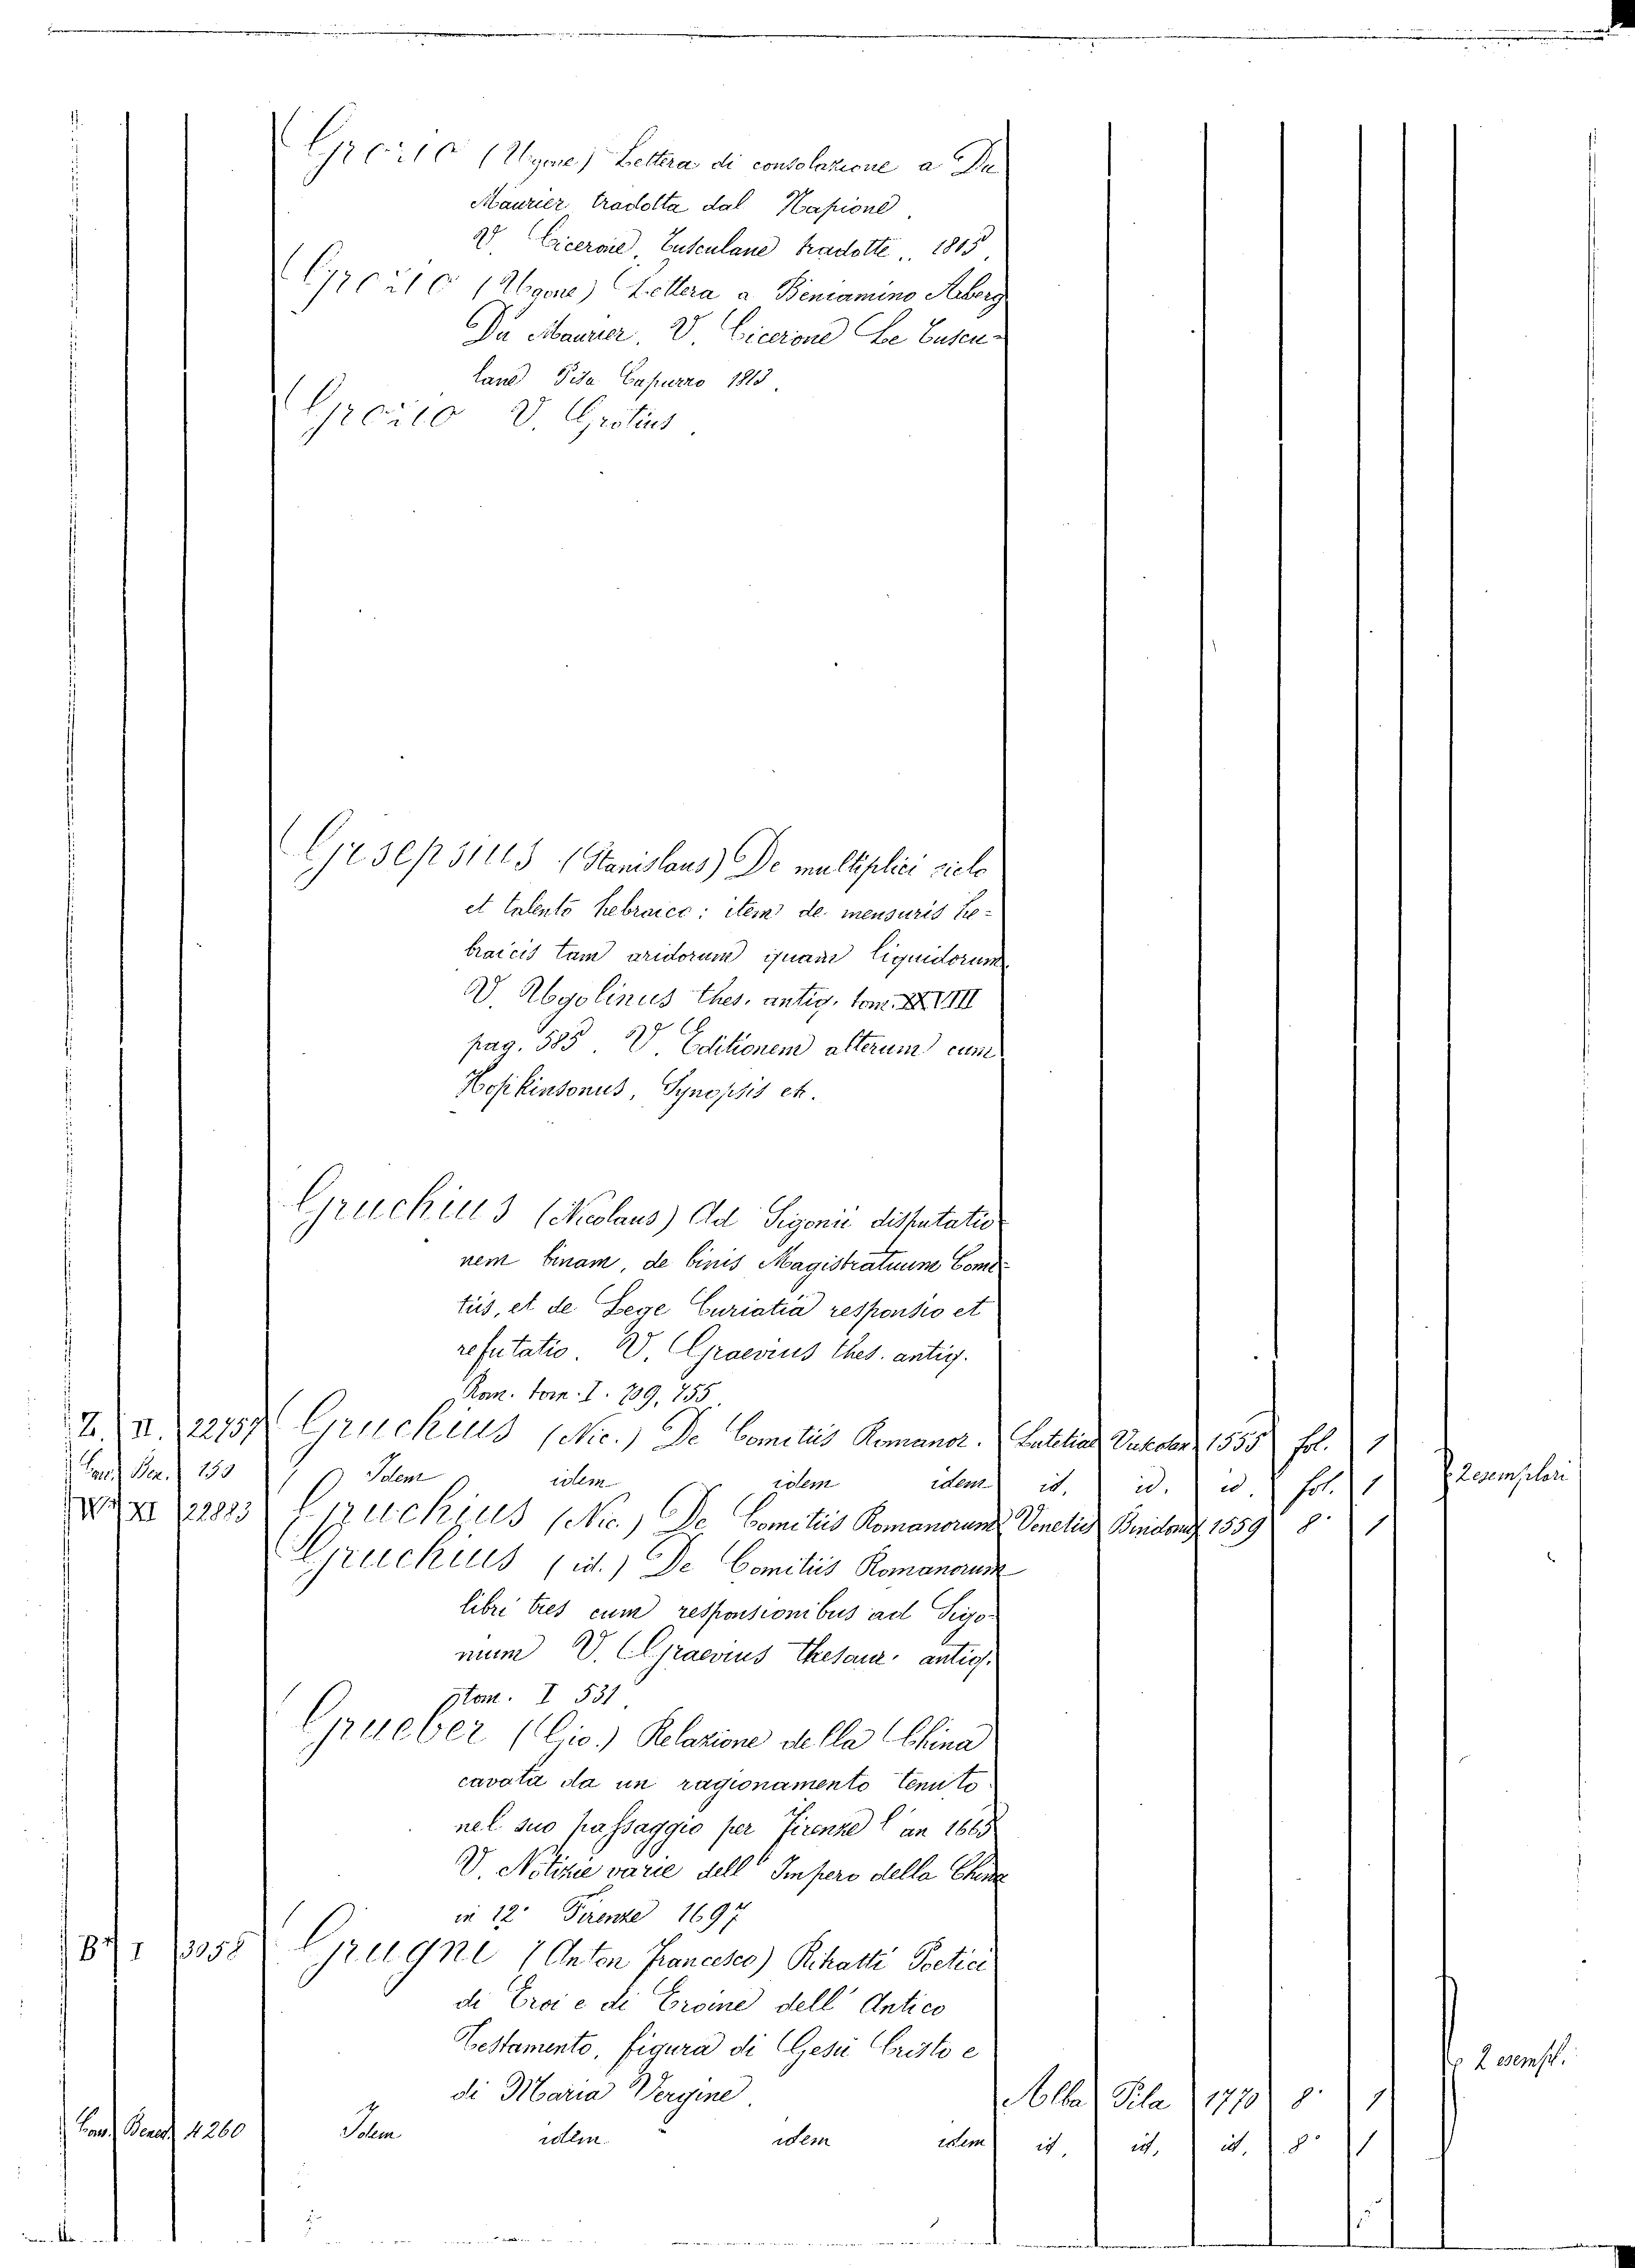 Grozio (Ugone) Lettera di consolazione a Du
Maurier tradotta dal Napione.
V. Cicerone, Tusculane tradotte.. 1805.
Grozio (Ugone) Lettera a Beniamino Auberg
Du Maurier. V. Cicerone Le Tuscu-
lane Pisa Capurro 1813.
Grozio V. Grotius.
Grsepsius (Stanislaus) De multiplici siclo
et talento hebraico: item de mensuris he-
braicis tam aridorum quam liquidorum.
V. Ugolinus thes. antiq. tom. XXVIII
pag. 585. V. Editionem alterum cum
Hopkinsonus, Synopsis etc.
Gruchius (Nicolaus) Ad Sigonii disputatio
nem binam, de binis Magistratuum Comi-
tiis, et de Lege Curiatia responsio et
refutatio. V. Graevius thes. antiq.
Rom. tom. I. 709, 755.
Z. II. 22757 Gruchius (Nic.) De Comitiis Romanor. Lutetiae Vascosan 1555 fol. 1
Cons. Ben. 153 Idem idem idem idem id. id. id. fol. 1 2 esemplari
W XI 22883 Gruchius (Nic.) De Comitiis Romanorum Venetiis Bindoni 1559 8° 1
Gruchius (id.) De Comitiis Romanorum
libri tres cum responsionibus ad Sigo-
nium V. Graevius thesaur. antiq.
tom. I 531.
Grueber (Gio.) Relazione della China
cavata da un ragionamento tenuto
nel suo passaggio per Firenze l'an 1665
V. Notizie varie dell'Impero della China
in 12° Firenze 1697
B I 3058 Grugni (Anton Francesco) Ritratti Poetici
di Eroi e di Eroine dell'Antico
Testamento, figura di Gesù Cristo e
di Maria Vergine. Alba Pila 1770 8° 1 2 esempl.
Cons. Bened. 4260 Idem idem idem idem id. id. id. 8° 1
5